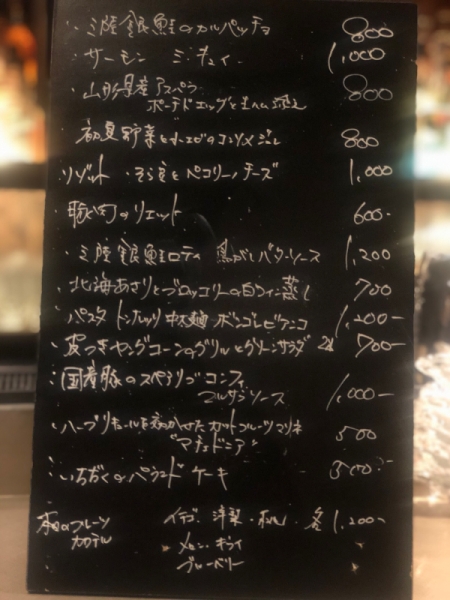 ・三陸銀鮭のカルパッチョ 800
サーモン ミ・キュイ 1,000
・山形県産アスパラ 800
ポーチドエッグと生ハム添え
・初夏野菜と小エビのコンソメジュレ 800
リゾット そら豆とペコリーノチーズ 1,000
・豚肉のリエット 600-
・三陸銀鮭ロティ 焦がしバターソース 1,200
・北海あさりとブロッコリーの白ワイン蒸し 700
パスタ 中太麺 ボンゴレビアンコ 1,200-
・皮つきヤングコーンのグリルとグリーンサラダ 700-
・国産豚のスペアリブコンフィ
マルサラソース 1,000-
・ハーブリキュールを効かせたカットフルーツマリネ
"マチェドニア" 500
・いちぢくのパウンドケーキ
本日のフルーツ イチゴ・洋梨 各1,200-
カクテル メロン・キウイ
ブルーベリー